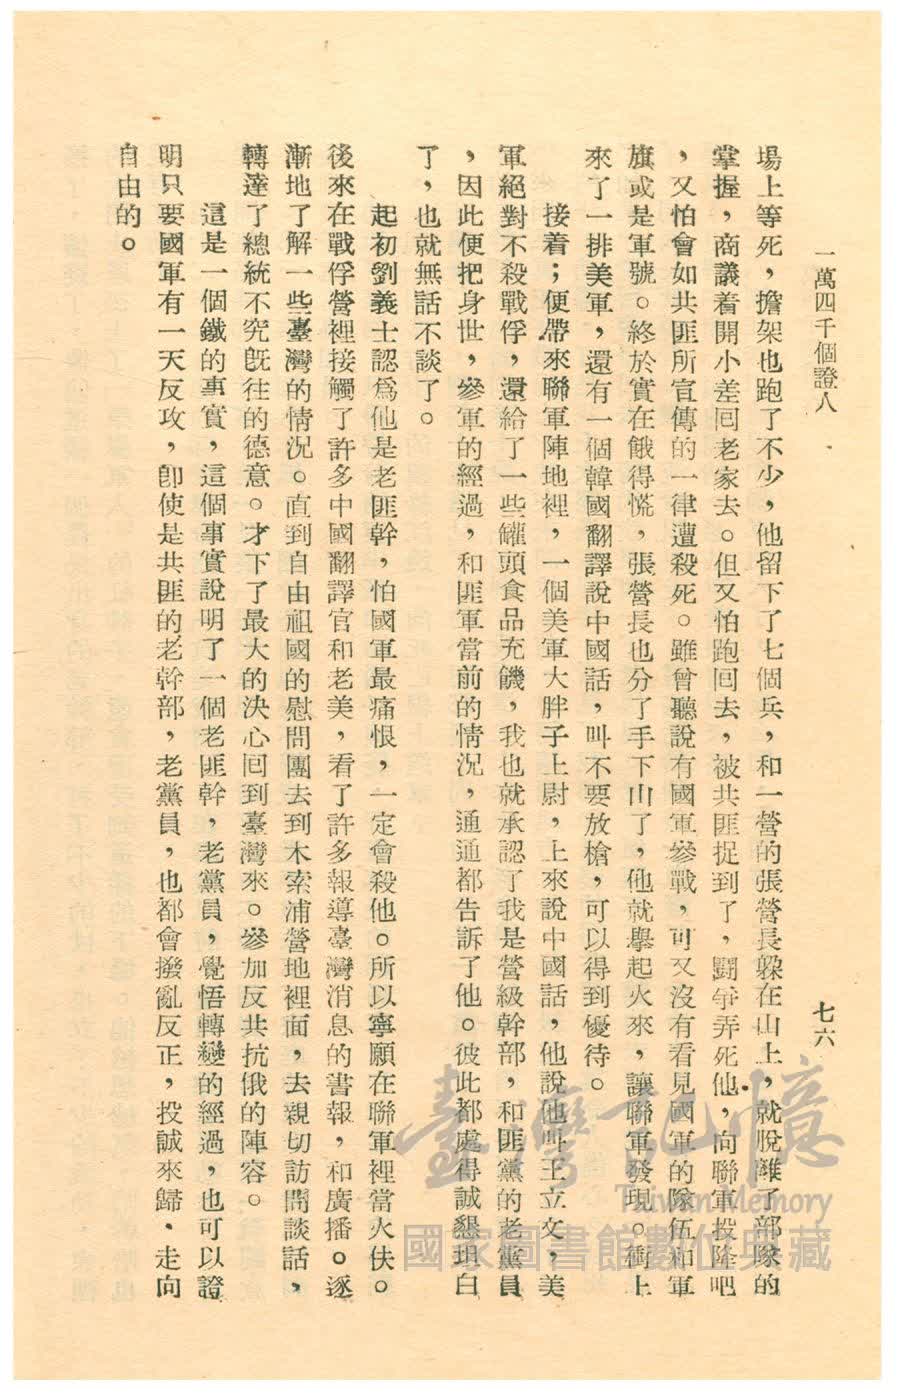 一萬四千個證人
七六
場上等死，擔架也跑了不少，他留下了七個兵，和一營的張營長躲在山上，就脫離了部隊的
掌握，商議着開小差囘老家去。但又怕跑囘去，被共匪捉到了，鬪爭弄死他，向聯軍投降吧
，又怕會如共匪所宣傳的一律遭殺死。雖曾聽說有國軍參戰，可又沒有看見國軍的隊伍和軍
旗或是軍號。終於實在餓得慌，張營長也分了手下山了，他就擧起火來，讓聯軍發現。衝上
來了一排美軍，還有一個韓國翻譯說中國話，叫不要放槍，可以得到優待。
接着；便帶來聯軍陣地裡，一個美軍大胖子上尉，上來說中國話，他說他叫王立文，美
軍絕對不殺戰俘，還給了一些罐頭食品充饑，我也就承認了我是營級幹部，和匪黨的老黨員
，因此便把身世，參軍的經過，和匪軍當前的情況，通通都告訴了他。彼此都處得誠懇坦白
了，也就無話不談了。
起初劉義士認爲他是老匪幹，怕國軍最痛恨，一定會殺他。所以寧願在聯軍裡當火伕。
後來在戰俘營裡接觸了許多中國翻譯官和老美，看了許多報導臺灣消息的書報，和廣播。逐
漸地了解一些臺灣的情況。直到自由祖國的慰問團去到木索浦營地裡面，去親切訪問談話，
轉達了總統不究旣往的德意。才下了最大的決心囘到臺灣來。參加反共抗俄的陣容。
這是一個鐵的事實，這個事實說明了一個老匪幹，老黨員，覺悟轉變的經過，也可以證
明只要國軍有一天反攻，卽使是共匪的老幹部，老黨員，也都會撥亂反正，投誠來歸，走向
自由的。
臺灣記憶
Taiwan Memory
國家圖書館數位典藏